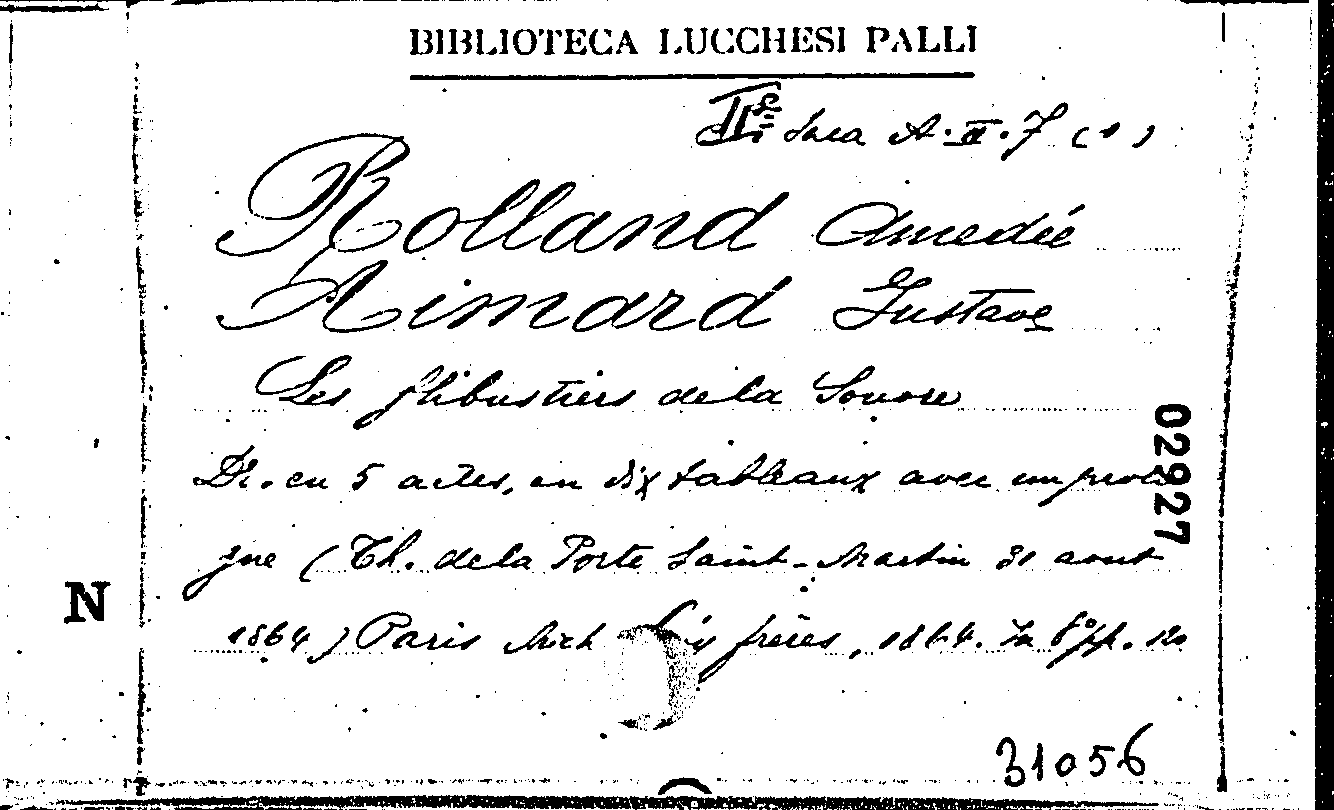 BIBLIOTECA LUCCHESI PALLI
II Sala A. II. 7 (1)
Rolland Amedée
Aimard Gustave
Les flibustiers de la Sonore
02927
Dr. en 5 actes, en dix tableaux avec un prolo
gue ( Th. de la Porte Saint-Martin 31 aout
N
1864) Paris Mich frères, 1864. In 8° pp.
31056